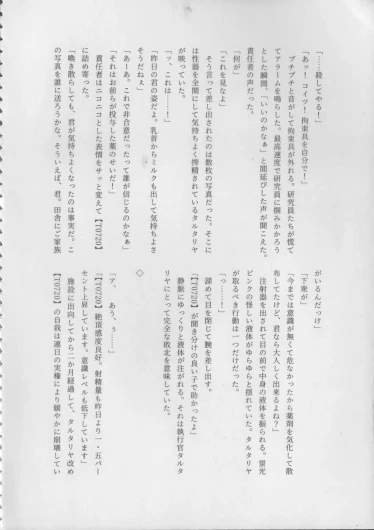 「……殺してやる!」
「あッ! コイツ! 拘束具を自分で!」
ブチブチと音がして拘束具が外れる。研究員たちが慌て
てアラームを鳴らした。最高速度で研究員に掴みかかろう
とした瞬間、「いいのかなぁ」と間延びした声が聞こえた。
責任者の声だった。
「何が」
「これを見なよ」
そう言って差し出されたのは数枚の写真だった。そこに
は性器を全開にして気持ちよく搾精されているタルタリヤ
が映っていた。
「ッ、これは……!」
「昨日の君の姿だよ。乳首からミルクも出して気持ちよさ
そうだねぇ」
「あーあ。これで非合意だったって誰が信じるのかなぁ」
「それはお前らが投与した薬のせいだ!」
責任者はニコニコとした表情をサッと変えて【T0720】
に詰め寄った。
「喚き散らしても、君が気持ちよくなったのは事実だ。こ
の写真を誰に送ろうかな。そういえば、君。田舎にご家族
がいるんだっけ」
「下衆が」
「今までは意識が無くて危なかったから薬剤を気化して散
布してたけど、君なら大人しく出来るよね?」
注射器を出されて目の前で中身の液体を振られる。蛍光
ピンクの怪しい液体がゆらゆらと揺れていた。タルタリヤ
が取るべき行動は一つだけだった。
「っ……!」
諦めて目を閉じて腕を差し出す。
「【T0720】が聞き分けの良い子で助かったよ」
静脈にゆっくりと液体が注がれる。それは執行官タルタ
リヤにとって完全な敗北を意味していた。
◇
「ア、 あう、 ぅ……」
「【T0720】、絶頂感度良好。射精量も昨日より一・五パー
セント上昇しています。意識レベルも低下しています」
施設に出向してから二か月経過して、タルタリヤ改め
【T0720】の自我は連日の実権により緩やかに崩壊してい